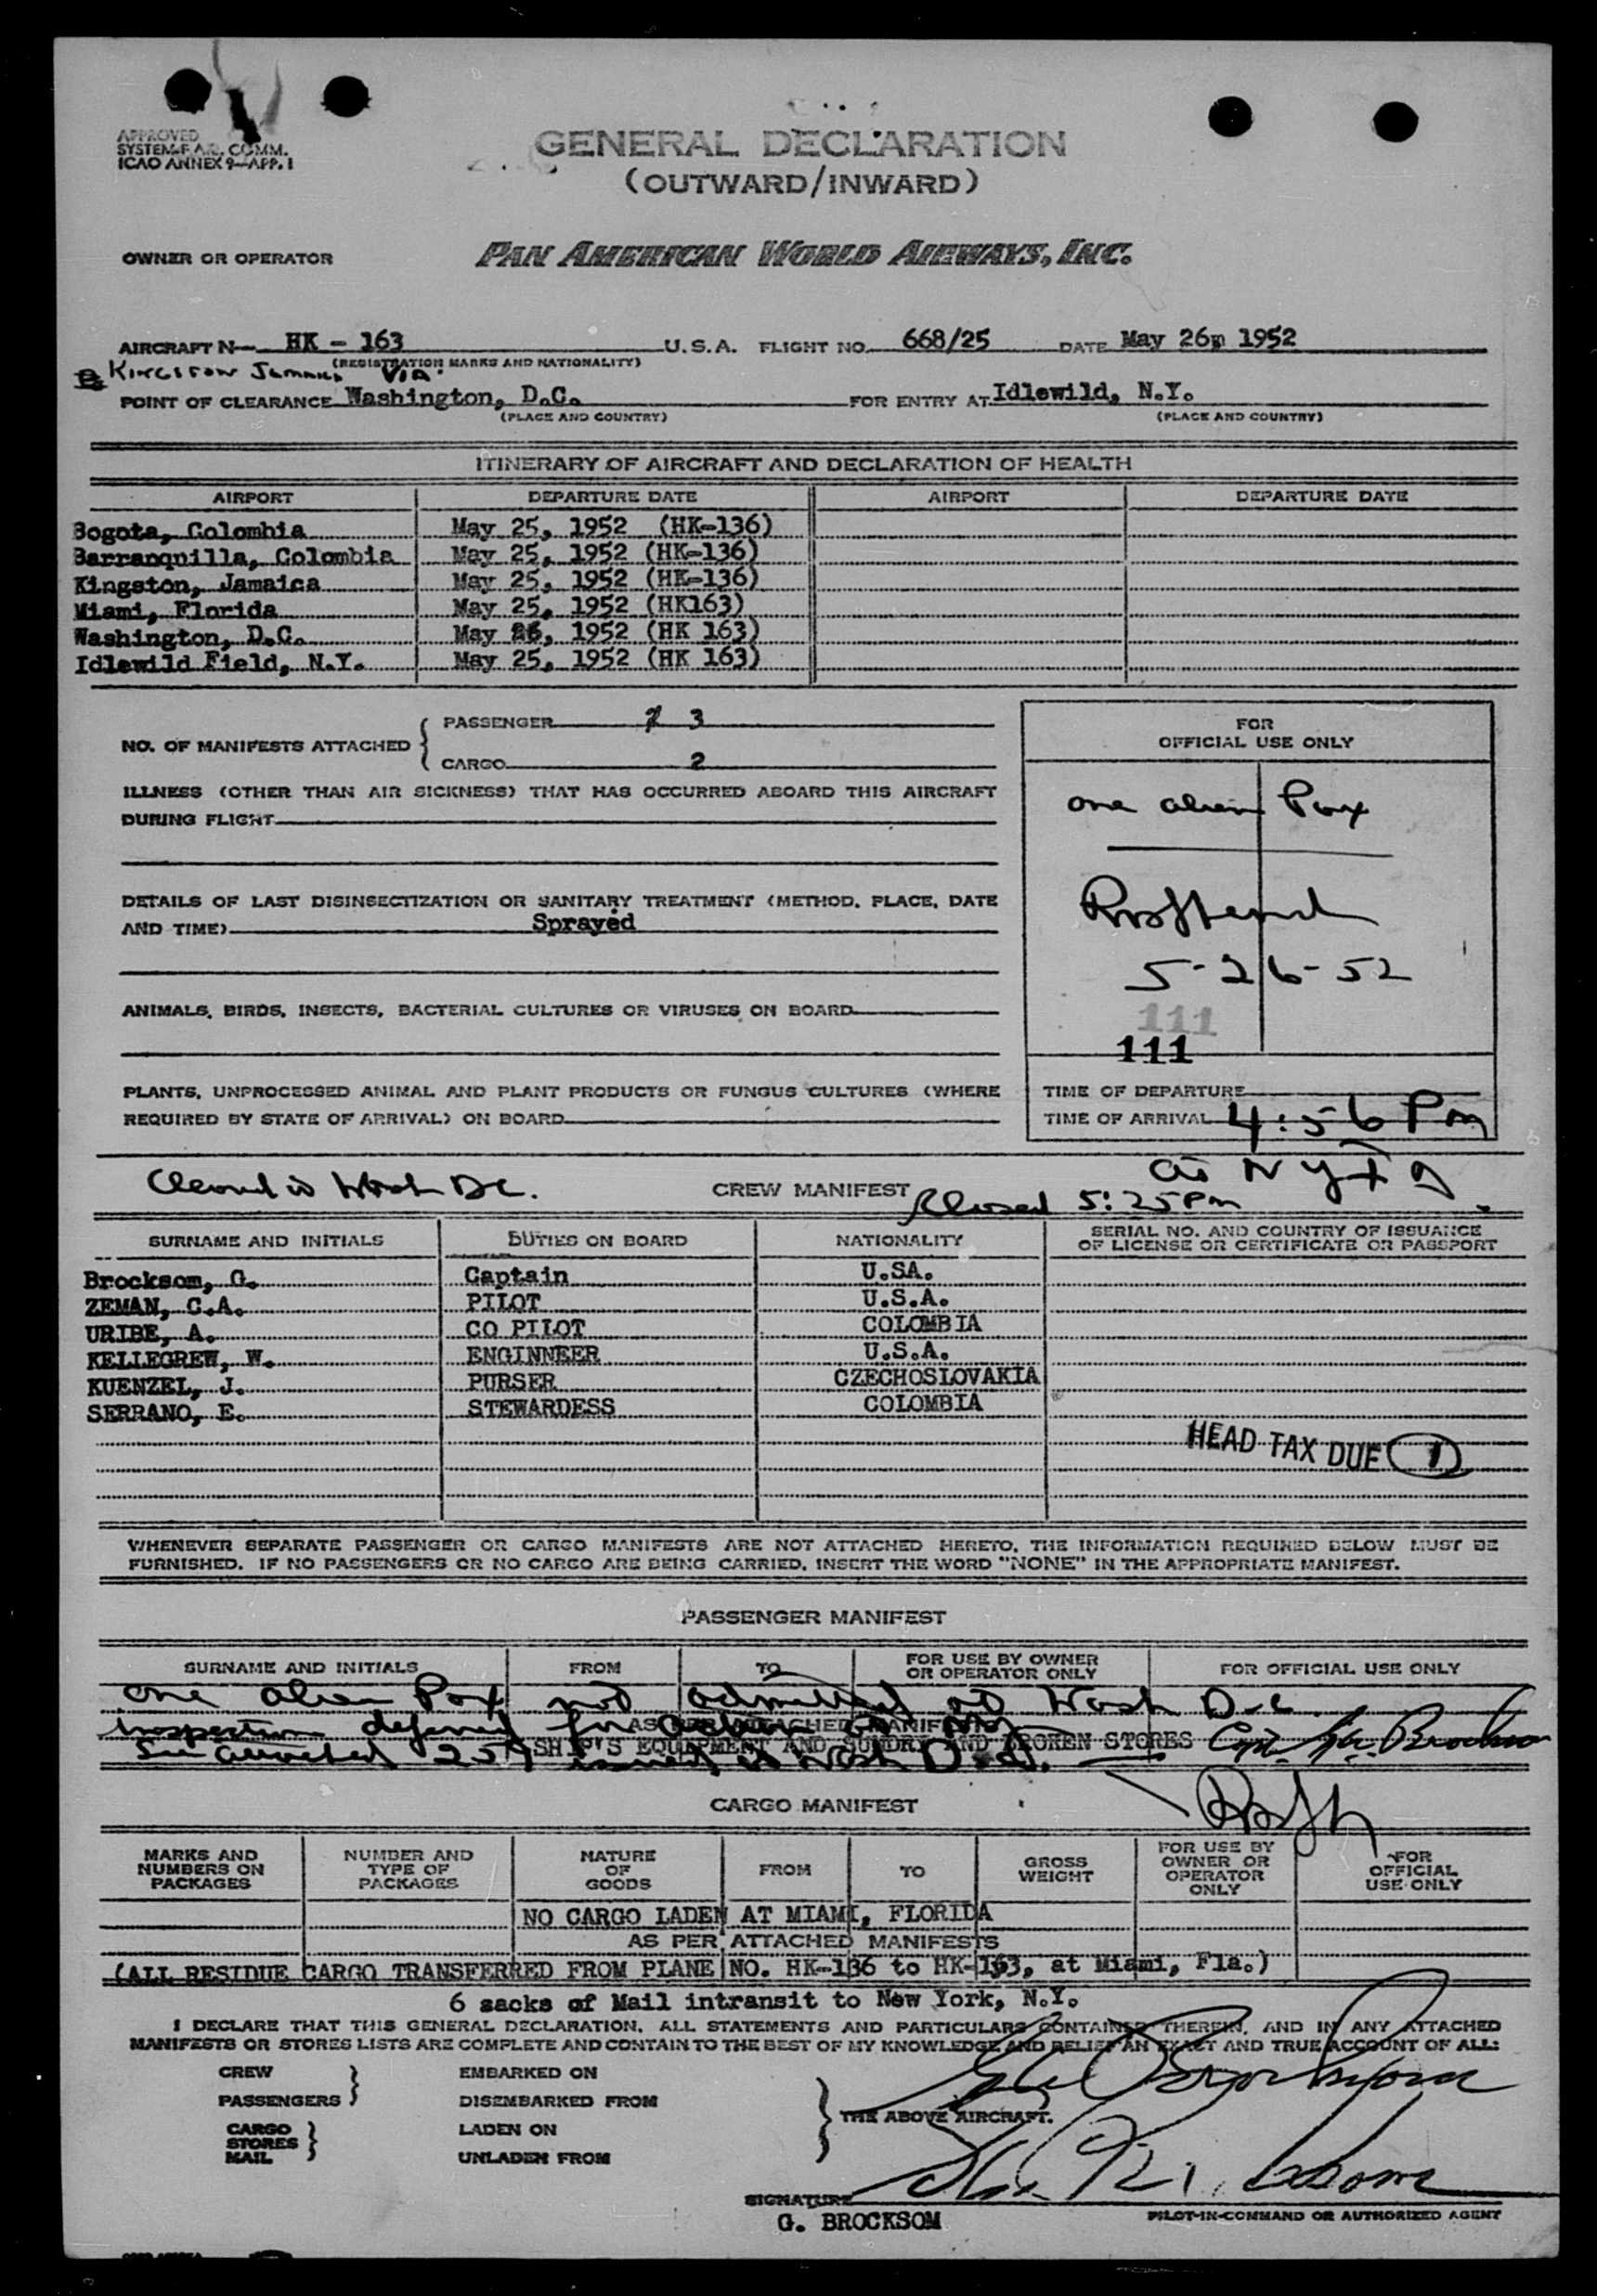 APPROVED
SYSTEM-F.A.R. COMM.
ICAO ANNEX 9—APP. I
GENERAL DECLARATION
(OUTWARD/INWARD)
OWNER OR OPERATOR PAN AMERICAN WORLD AIRWAYS, INC.
AIRCRAFT N— HK - 163 U.S.A. FLIGHT NO. 668/25 DATE May 26, 1952
(REGISTRATION MARKS AND NATIONALITY)
Kingston Jamaica VIA
POINT OF CLEARANCE Washington, D.C. FOR ENTRY AT Idlewild, N.Y.
(PLACE AND COUNTRY) (PLACE AND COUNTRY)
ITINERARY OF AIRCRAFT AND DECLARATION OF HEALTH
AIRPORT DEPARTURE DATE AIRPORT DEPARTURE DATE
Bogota, Colombia May 25, 1952 (HK-136)
Barranquilla, Colombia May 25, 1952 (HK-136)
Kingston, Jamaica May 25, 1952 (HK-136)
Miami, Florida May 25, 1952 (HK163)
Washington, D.C. May 26, 1952 (HK 163)
Idlewild Field, N.Y. May 25, 1952 (HK 163)
NO. OF MANIFESTS ATTACHED
PASSENGER 3
CARGO 2
ILLNESS (OTHER THAN AIR SICKNESS) THAT HAS OCCURRED ABOARD THIS AIRCRAFT
DURING FLIGHT
DETAILS OF LAST DISINSECTIZATION OR SANITARY TREATMENT (METHOD, PLACE, DATE
AND TIME) Sprayed
ANIMALS, BIRDS, INSECTS, BACTERIAL CULTURES OR VIRUSES ON BOARD
PLANTS, UNPROCESSED ANIMAL AND PLANT PRODUCTS OR FUNGUS CULTURES (WHERE
REQUIRED BY STATE OF ARRIVAL) ON BOARD
FOR
OFFICIAL USE ONLY
one alien Pax
5-26-52
111
111
TIME OF DEPARTURE
TIME OF ARRIVAL 4:56 Pm
Cleared in Wash DC. CREW MANIFEST Closed 5:25 Pm
SURNAME AND INITIALS DUTIES ON BOARD NATIONALITY SERIAL NO. AND COUNTRY OF ISSUANCE
OF LICENSE OR CERTIFICATE OR PASSPORT
Brocksom, G. Captain U.SA.
ZEMAN, C.A. PILOT U.S.A.
URIBE, A. CO PILOT COLOMBIA
KELLEGREW, W. ENGINNEER U.S.A.
KUENZEL, J. PURSER CZECHOSLOVAKIA
SERRANO, E. STEWARDESS COLOMBIA
HEAD TAX DUE 1
WHENEVER SEPARATE PASSENGER OR CARGO MANIFESTS ARE NOT ATTACHED HERETO, THE INFORMATION REQUIRED BELOW MUST BE
FURNISHED. IF NO PASSENGERS OR NO CARGO ARE BEING CARRIED, INSERT THE WORD "NONE" IN THE APPROPRIATE MANIFEST.
PASSENGER MANIFEST
SURNAME AND INITIALS FROM TO FOR USE BY OWNER
OR OPERATOR ONLY FOR OFFICIAL USE ONLY
one alien Pax not admitted at Wash D.C.
inspection deferred for
AS PER ATTACHED MANIFESTS
See attached 259 issued at Wash D.C.
SHIP'S EQUIPMENT AND SUNDRY AND BROKEN STORES
CARGO MANIFEST
MARKS AND
NUMBERS ON
PACKAGES
NUMBER AND
TYPE OF
PACKAGES
NATURE
OF
GOODS
FROM TO GROSS
WEIGHT
FOR USE BY
OWNER OR
OPERATOR
ONLY
FOR
OFFICIAL
USE ONLY
NO CARGO LADEN AT MIAMI, FLORIDA
AS PER ATTACHED MANIFESTS
(ALL RESIDUE CARGO TRANSFERRED FROM PLANE NO. HK-136 to HK-163, at Miami, Fla.)
6 sacks of Mail intransit to New York, N.Y.
I DECLARE THAT THIS GENERAL DECLARATION, ALL STATEMENTS AND PARTICULARS CONTAINED THEREIN, AND IN ANY ATTACHED
MANIFESTS OR STORES LISTS ARE COMPLETE AND CONTAIN TO THE BEST OF MY KNOWLEDGE AND BELIEF AN EXACT AND TRUE ACCOUNT OF ALL:
CREW EMBARKED ON
PASSENGERS DISEMBARKED FROM
THE ABOVE AIRCRAFT.
CARGO LADEN ON
STORES
MAIL UNLADEN FROM
SIGNATURE
G. BROCKSOM PILOT-IN-COMMAND OR AUTHORIZED AGENT